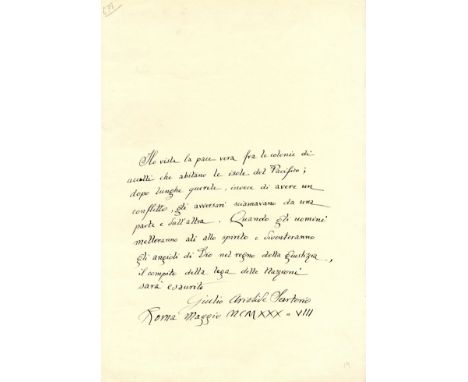 Ho vista la pace vera fra le colonie di
uccelli che abitano le isole del Pacifico;
dopo lunghe querele, invece di avere un
conflitto, gli avversari sciamavano da una
parte e dall'altra. Quando gli uomini
metteranno ali allo spirito e diventeranno
gli angioli di Dio nel regno della Giustizia,
il compito della lega delle Nazioni
sarà esaurito
Giulio Aristide Sartorio
Roma Maggio MCMXXX - VIII